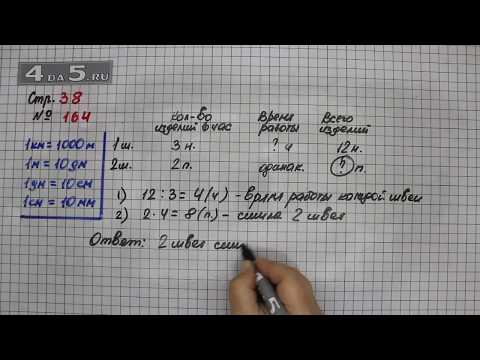 4DA5.RU
Стр. 38
№ 164
1км = 1000м
1м = 10дм
1дм = 10см
1см = 10мм
Кол-во изделий в час
Время работы
Всего изделий
1ш. 3 н. ? ч 12н.
2ш. 2 п. одинак. ? п.
1) 12 : 3 = 4 (ч) - время работы каждой швеи
2) 2 · 4 = 8 (п) - сшила 2 швея
Ответ: 2 швея сши